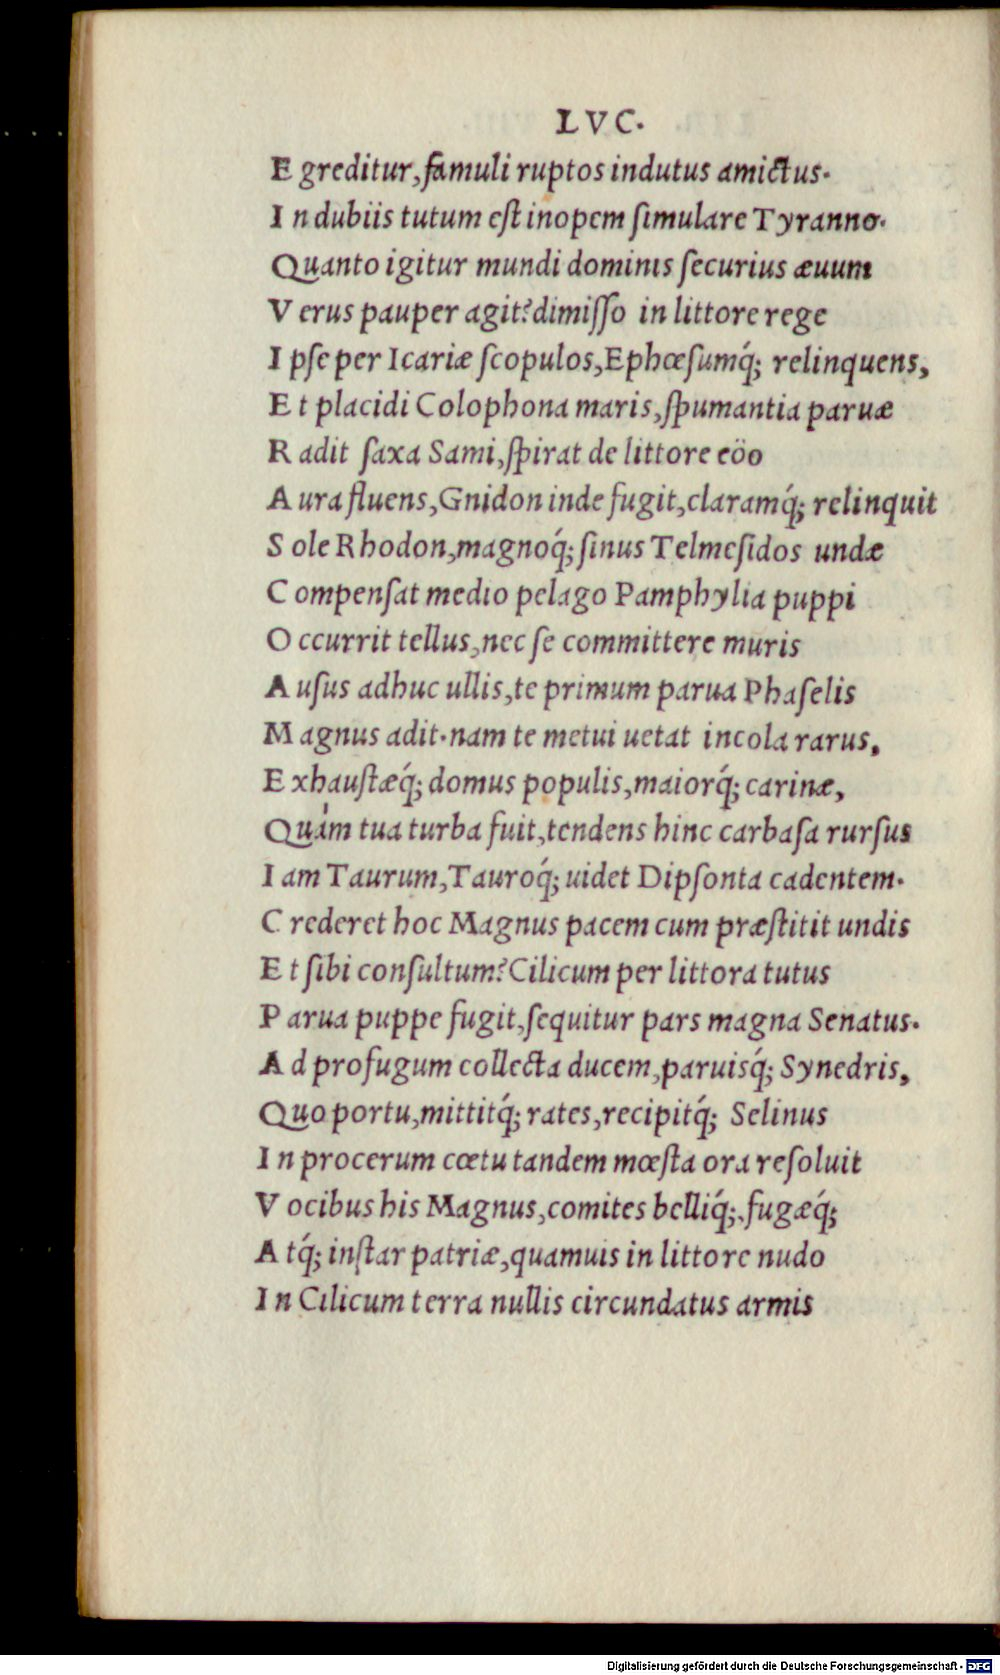 LVC.
E greditur, famuli ruptos indutus amictus.
I n dubiis tutum eſt inopem ſimulare Tyranno.
Quanto igitur mundi dominis ſecurius æuum
V erus pauper agit? dimiſſo in littore rege
I pſe per Icariæ ſcopulos, Ephœſumq́; relinquens,
E t placidi Colophona maris, ſpumantia paruæ
R adit ſaxa Sami, ſpirat de littore eöo
A ura fluens, Gnidon inde fugit, claramq́; relinquit
S ole Rhodon, magnoq́; ſinus Telmeſidos undæ
C ompenſat medio pelago Pamphylia puppi
O ccurrit tellus, nec ſe committere muris
A uſus adhuc ullis, te primum parua Phaſelis
M agnus adit. nam te metui uetat incola rarus,
E xhauſtæq́; domus populis, maiorq́; carinæ,
Quàm tua turba fuit, tendens hinc carbaſa rurſus
I am Taurum, Tauroq́; uidet Dipſonta cadentem.
C rederet hoc Magnus pacem cum præſtitit undis
E t ſibi conſultum? Cilicum per littora tutus
P arua puppe fugit, ſequitur pars magna Senatus.
A d profugum collecta ducem, paruisq́; Synedris,
Quo portu, mittitq́; rates, recipitq́; Selinus
I n procerum cœtu tandem mœſta ora reſoluit
V ocibus his Magnus, comites belliq́;, fugæq́;
A tq́; inſtar patriæ, quamuis in littore nudo
I n Cilicum terra nullis circundatus armis
Digitalisierung gefördert durch die Deutsche Forschungsgemeinschaft - DFG